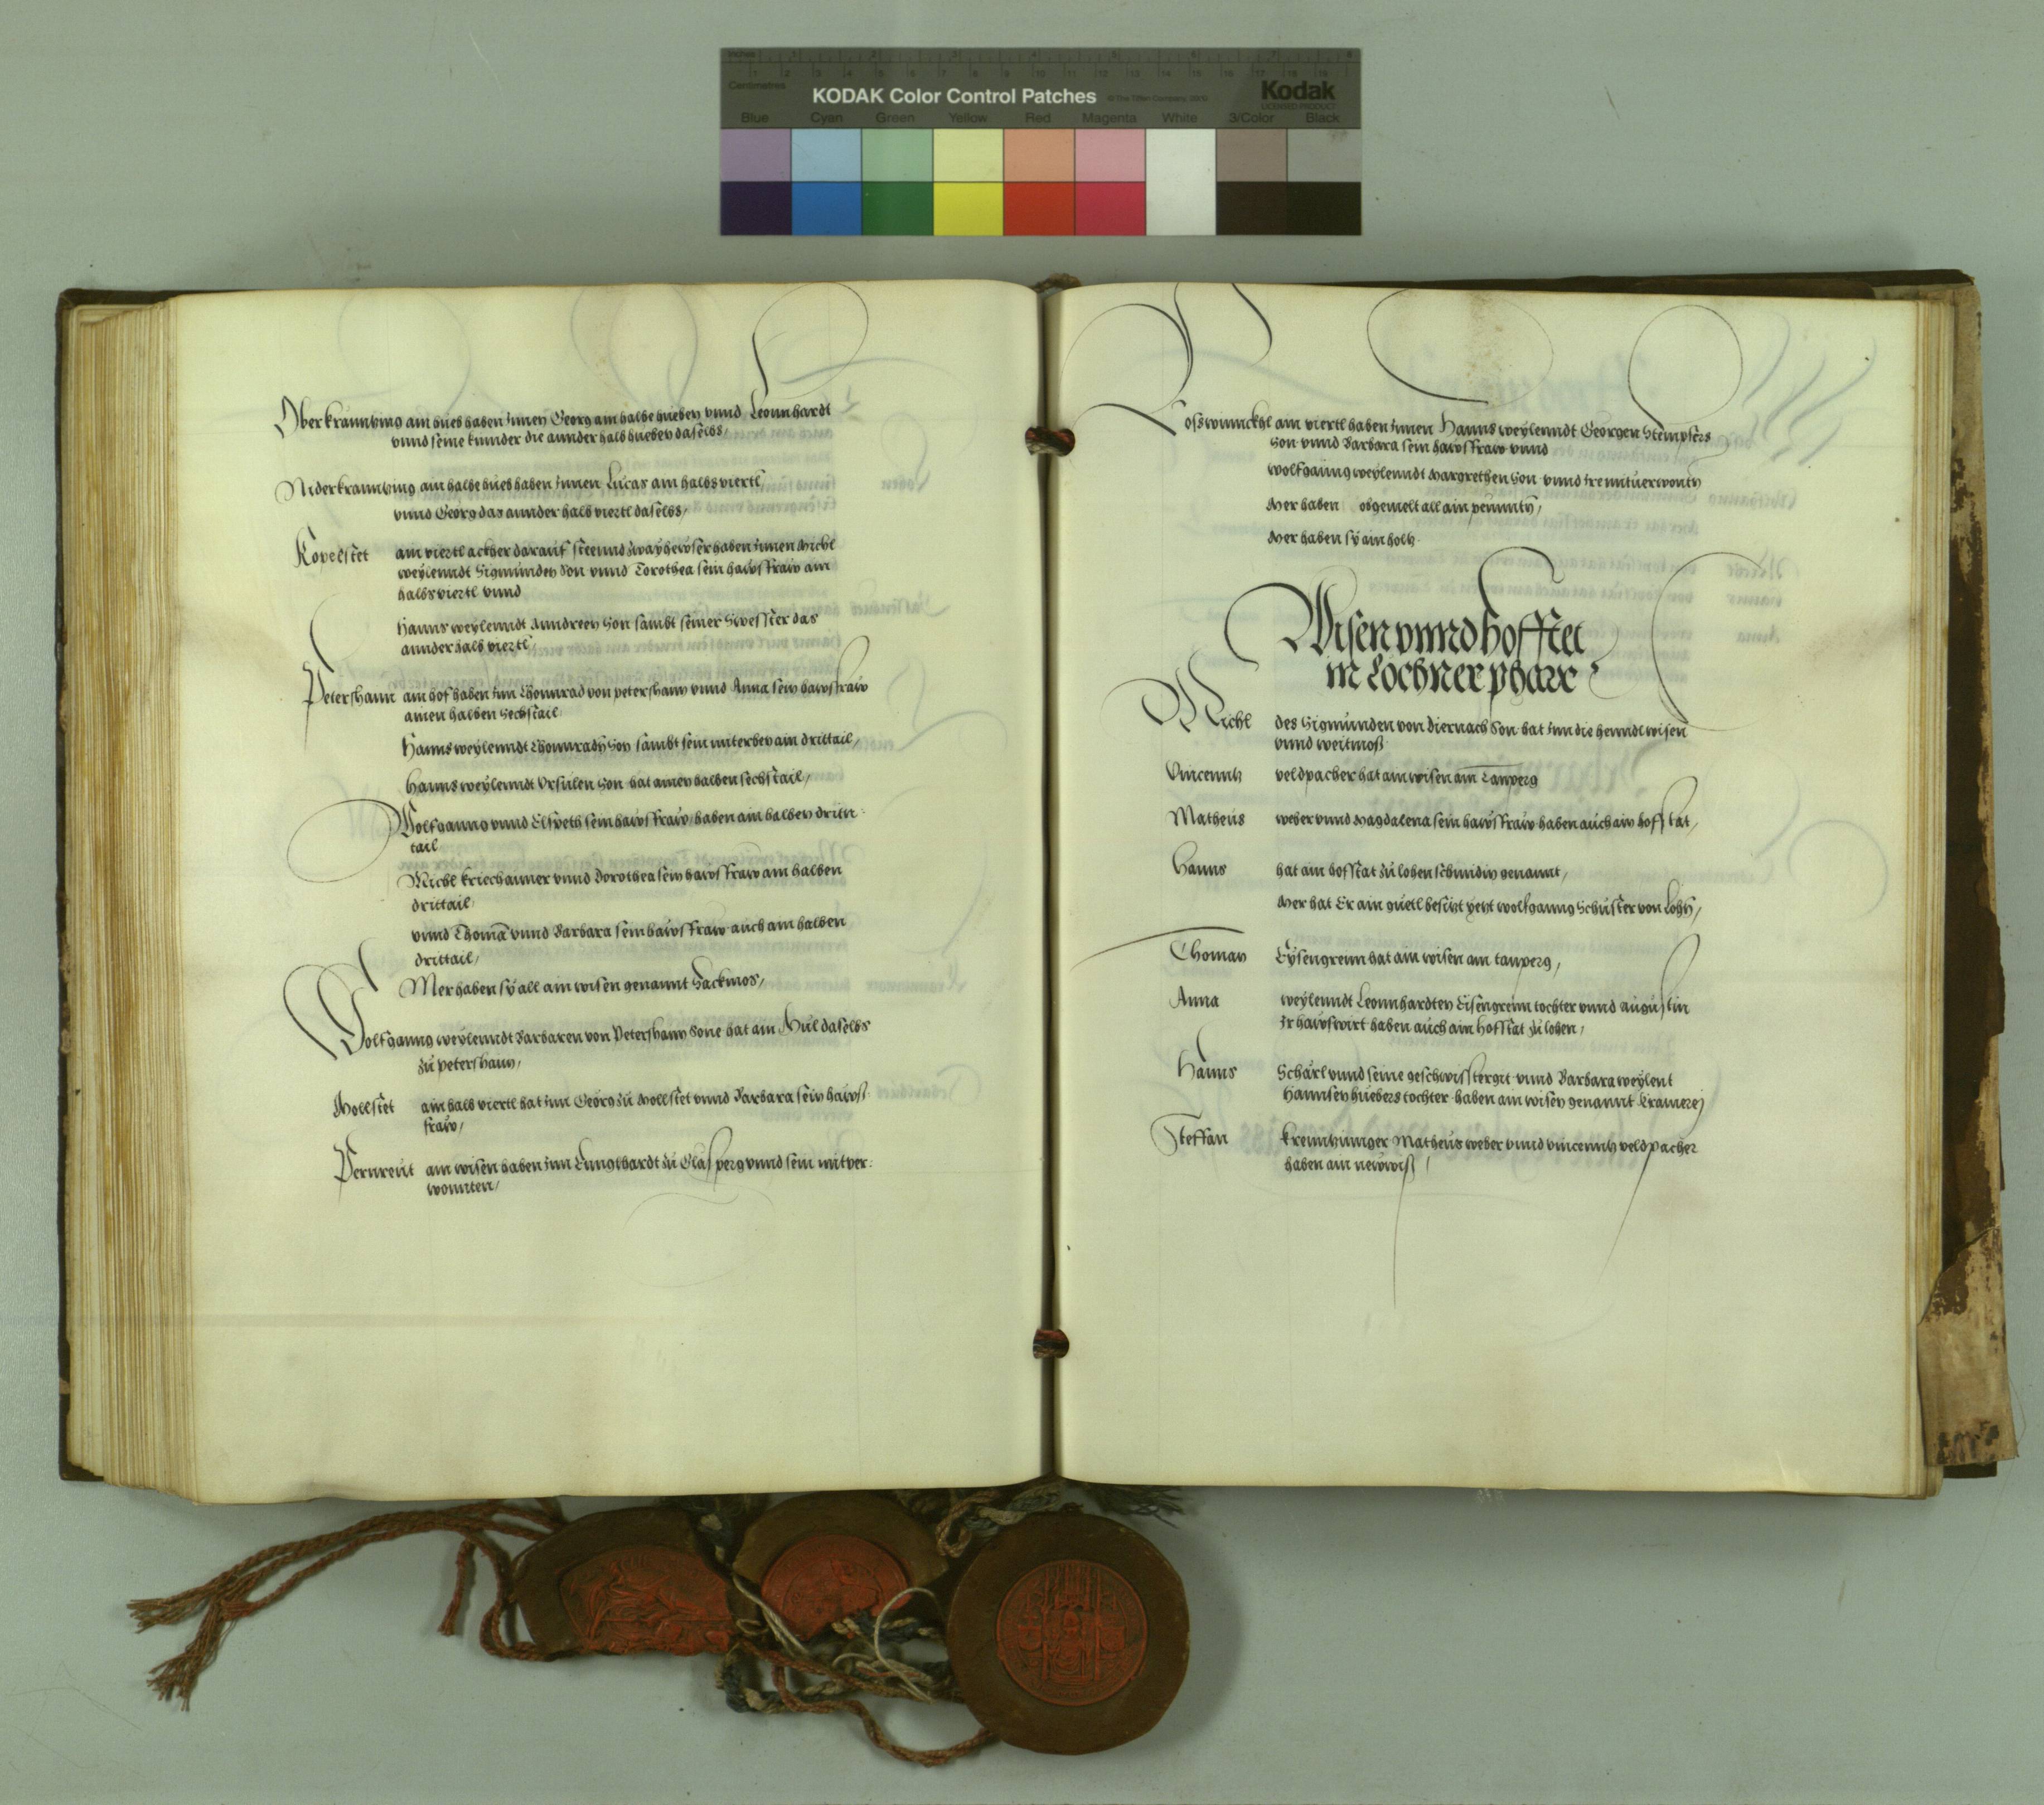 Inches 1 2 3 4 5 6 7 8
Centimetres 1 2 3 4 5 6 7 8 9 10 11 12 13 14 15 16 17 18 19
KODAK Color Control Patches © The Tiffen Company, 2000 Kodak
LICENSED PRODUCT
Blue Cyan Green Yellow Red Magenta White 3/Color Black
Oberkranntzing ain hueb haben Innen Georg ain halbe hueben vnnd Leonnhardt
vnnd seine kinnder die annder halb hueben daselbs,
Niderkranntzing ain halbe hueb haben Innen Lucas ain halbs viertl
vnnd Georg das annder halb viertl daselbs,
Kobelstet ain viertl ackher darauf steennd zway hewser haben Innen Michl
weylenndt Sigmunden Son vnnd Dorothea sein hawsfraw ain
halbs viertl vnnd
Hanns weylenndt Anndreen Son sambt seiner Swesster das
annder halb viertl,
Petershann ain hof haben Inn Chonnrad von petershann vnnd Anna sein hawsfraw
ainen halben Sechstail
Hanns weylenndt Chonnradn Son sambt sein miterben ain drittail,
Hanns weylenndt Vrsulen Son hat ainen halben sechstail,
Wolfganng vnnd Elspeth sein hawsfraw haben ain halben drit-
tail
Michl kriechamer vnnd Dorothea sein hawsfraw ain halben
drittail,
vnnd Thoman vnnd Barbara sein hawsfraw auch ain halben
drittail,
Mer haben sy all ain wisen genannt Hackmos,
Wolfganng weylenndt Barbaren von Petershann Sone hat ain Mul daselbs
zu petershann,
Mollstet ain halb viertl hat Inn Georg zu Mollstet vnnd Barbara sein haws-
fraw,
Pernreut ain wisen haben Inn Lunglhardt zu Glasperg vnnd sein mitver-
wonnten,
Losswinnckhl ain viertl haben Innen Hanns weylenndt Georgen Stempfers
Son vnnd Barbara sein hawsfraw vnnd
wolfganng weylenndt Margrethen Son vnnd Ir mituerwontn
Mer haben obgemelt all ain pewnntn,
Mer haben sy ain holtz
Wisen vnnd hofstet
in Lochner pharr
Michl des Sigmunden von diernach Son hat Inn die henndl wisen
vnnd weitmoß
Vincenntz veldpacher hat ain wisen am Tanperg
Matheus weber vnnd Magdalena sein hawsfraw haben auch ain hofstat,
Hanns hat ain hofstat zu lohen schmidin genannt,
Mer hat Er ain guetl besitzt yetzt wolfganng Schuster von Lohn,
Thoman Eysengrein hat ain wisen am tanperg,
Anna weylenndt Leonnhardten Eisengreinn tochter vnnd augustin
Ir hawswirt haben auch ain hofstat zu lohen,
Hanns Schärl vnnd seine geschwistergit vnnd Barbara weylent
Hannsen huebers tochter haben ain wisen genannt kramerej
Steffan krenntzinger Matheus weber vnnd vincenntz veldpacher
haben ain newwiß,